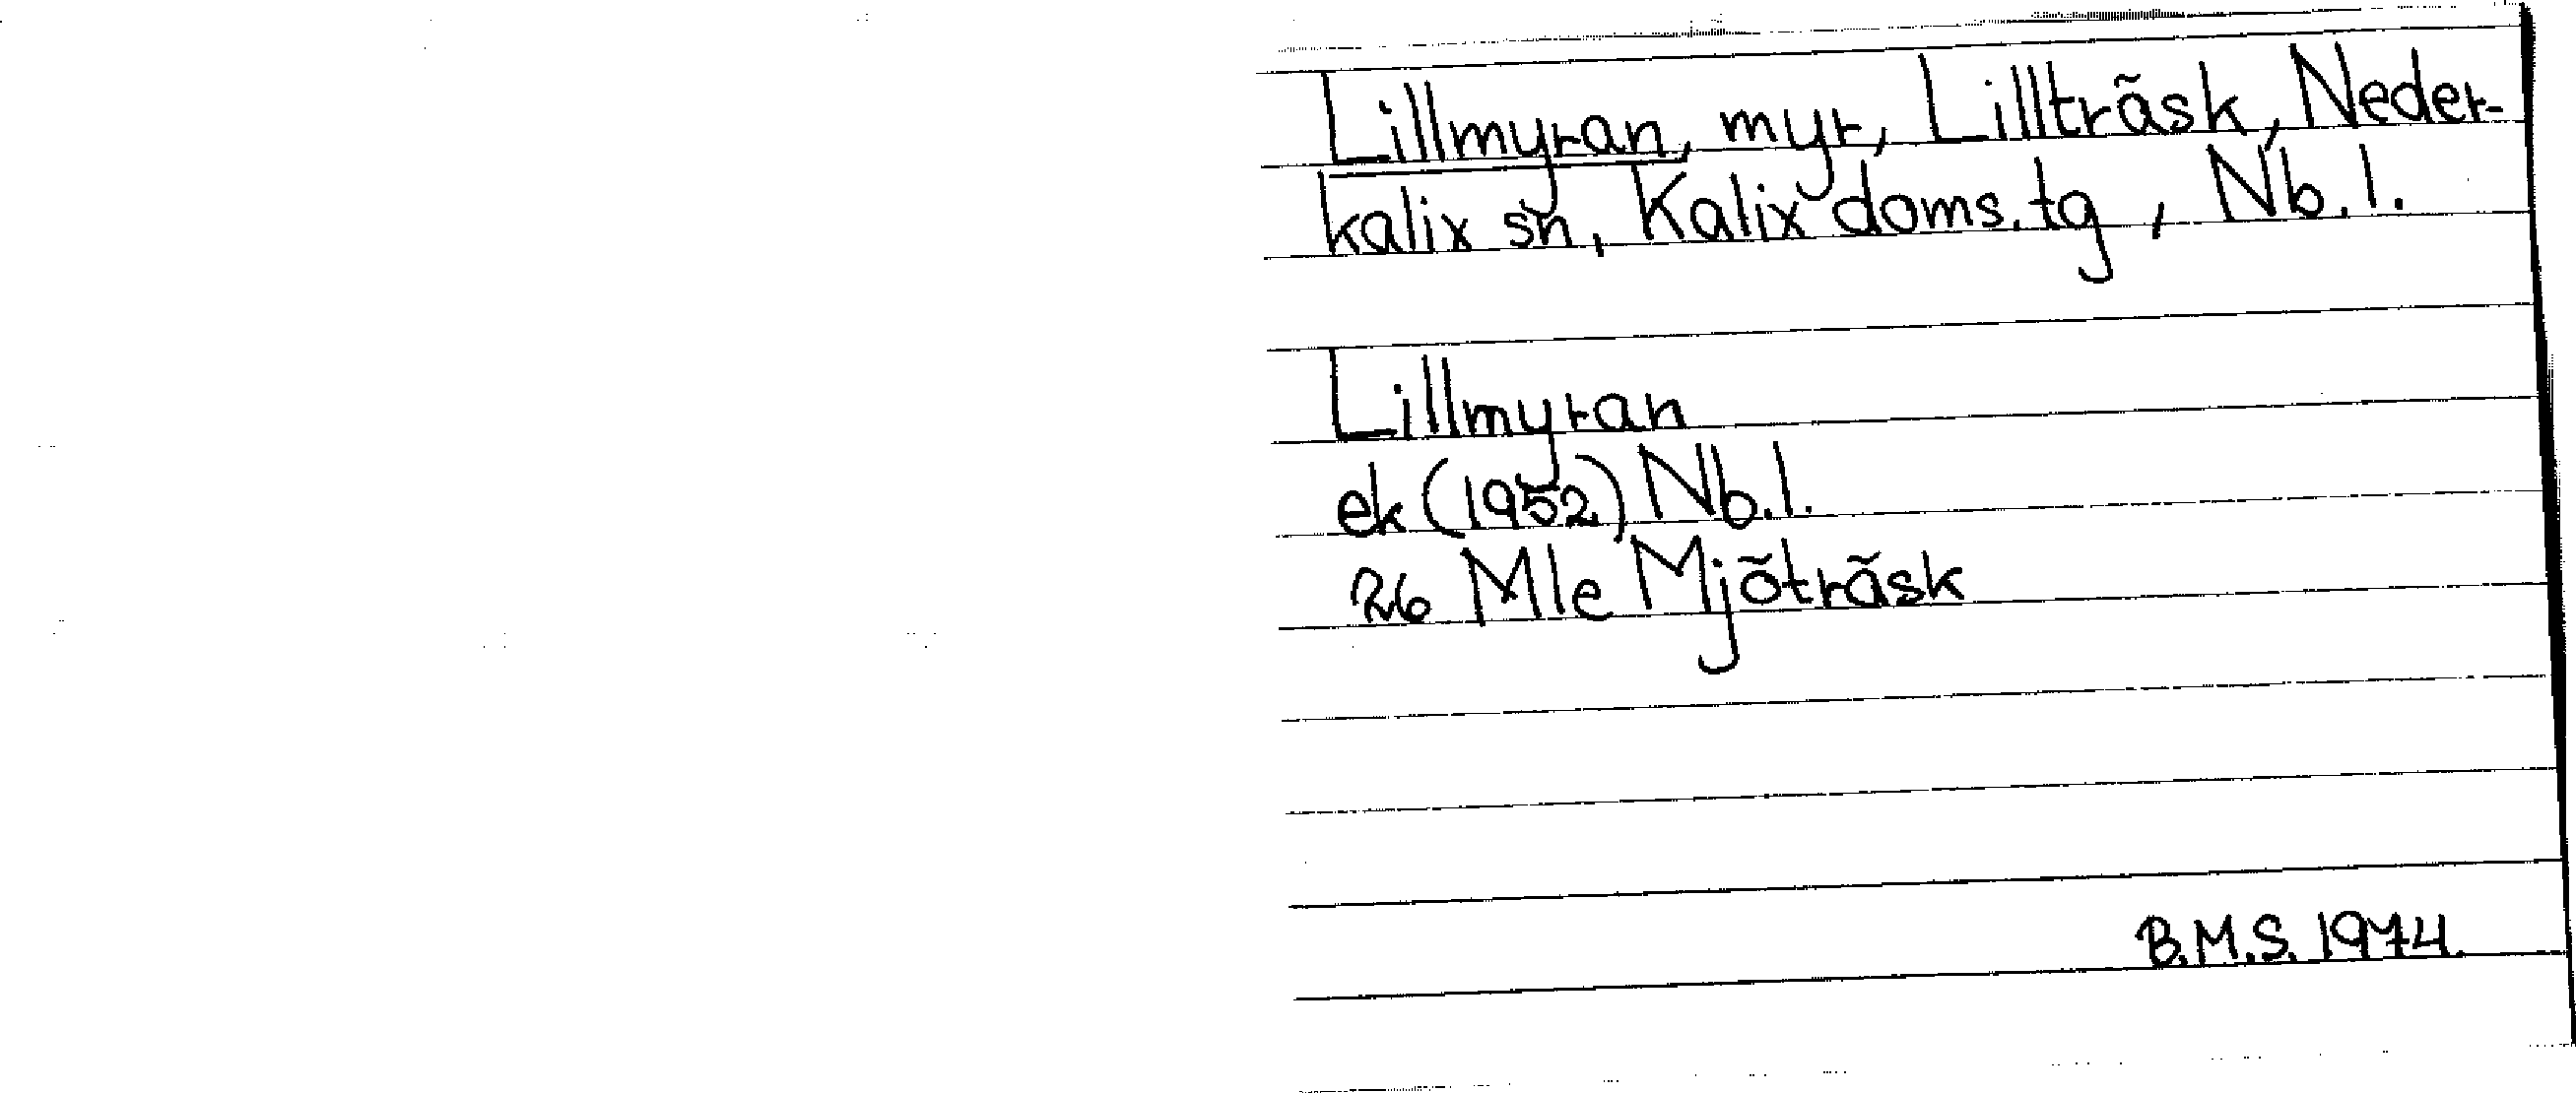 Lillmyran, myr, Lillträsk, Neder-
kalix sn, Kalix doms.tg, Nb.l.
Lillmyran
ek (1952) Nb.l.
26 Mle Mjöträsk
B.M.S. 1974.